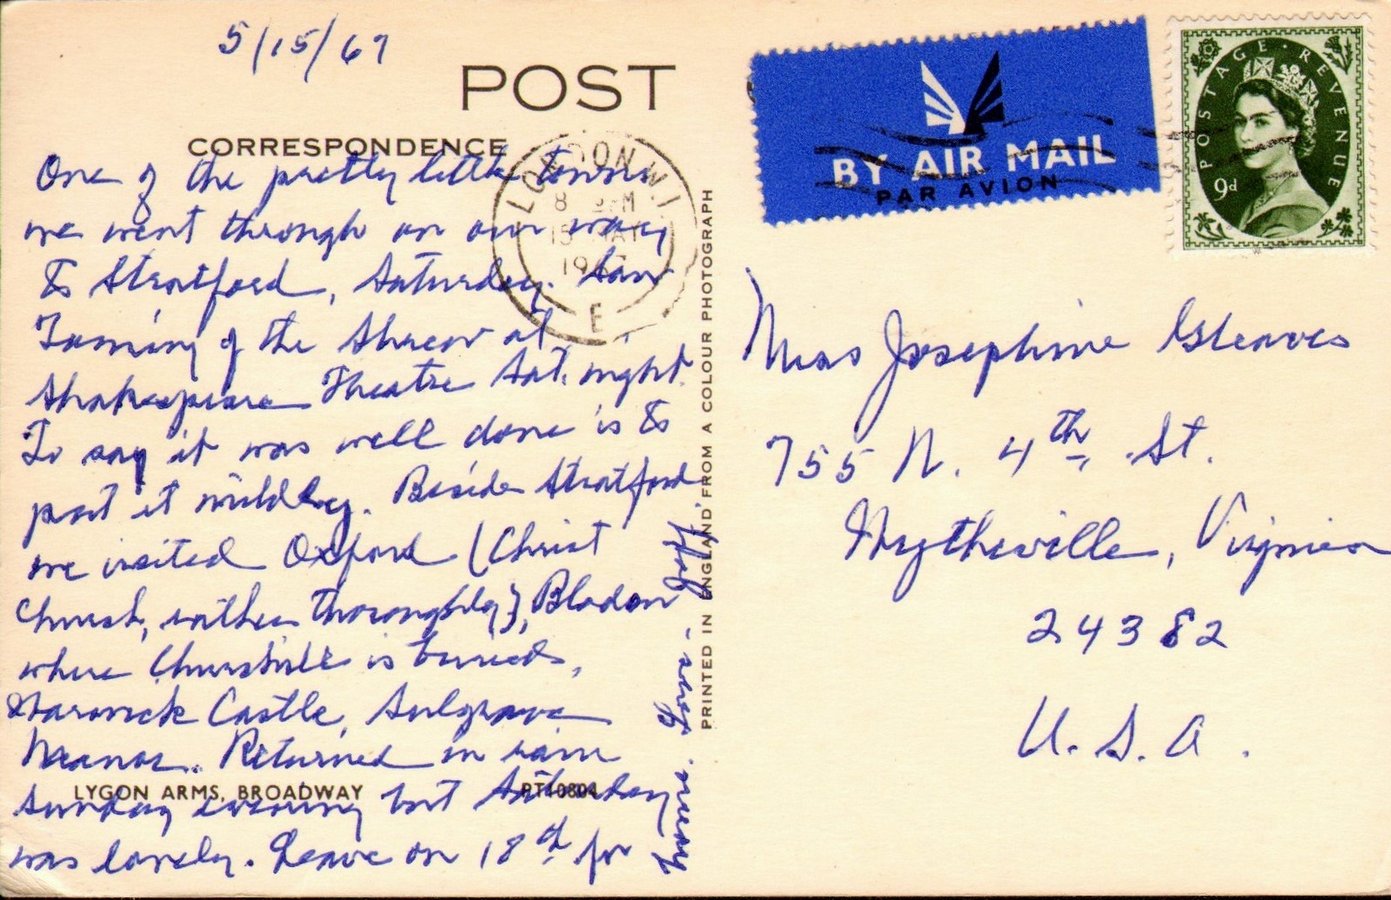 5/15/67
POST
CORRESPONDENCE
One of the pretty little towns
we went through on our way
to Stratford, Saturday. Saw
Taming of the Shrew at
Shakespeare Theatre Sat. night.
To say it was well done is to
put it mildly. Beside Stratford,
we visited Oxford (Christ
Church, rather thoroughly), Bladon
where Churchill is buried,
Warwick Castle, Sulgrave
Manor. Returned in rain
Sunday evening but Saturday
was lovely. Leave on 18th for
home. Love,
LYGON ARMS, BROADWAY
PT10804
PRINTED IN ENGLAND FROM A COLOUR PHOTOGRAPH
LONDON W.1.
8 PM
15 MAY
1967
E
BY AIR MAIL
PAR AVION
POSTAGE REVENUE
9d
Miss Josephine Gleaves
755 N. 4th St.
Wytheville, Virginia
24382
U.S.A.